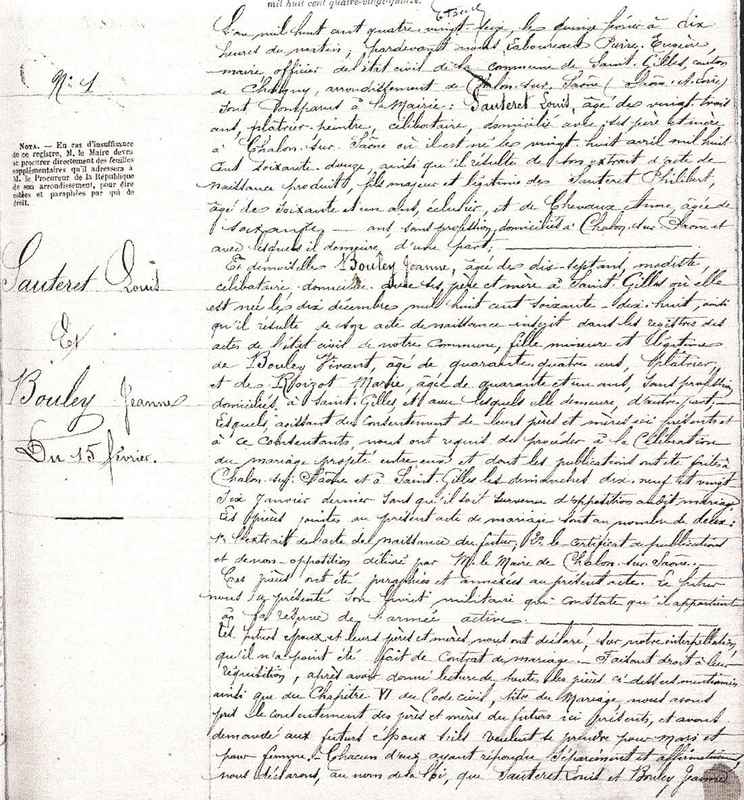 mil huit cent quatre-vingt-seize.
L'an mil huit cent quatre vingt-seize, le quinze février à dix
heures du matin, pardevant nous Laboureau Pierre Eugène,
maire, officier de l'état civil de la commune de Saint-Gilles, canton
de Chagny, arrondissement de Chalon-sur-Saône (Saône-et-Loire)
sont comparus à la Mairie : Sauteret Louis, âgé de vingt-trois
ans, platrier-peintre, célibataire, domicilié avec ses père et mère
à Chalon-sur-Saône où il est né le vingt-huit avril mil huit
cent soixante-douze, ainsi qu'il résulte de son extrait d'acte de
naissance produit, fils majeur et légitime des Sauteret Philibert,
âgé de soixante et un ans, éclusier, et de Chevaux Anne, âgée de
soixante ans sans profession, domiciliés à Chalon-sur-Saône et
avec lesquels il demeure, d'une part ;
Et demoiselle Bouley Jeanne, âgée de dix-sept ans, modiste,
célibataire domiciliée avec ses père et mère à Saint-Gilles où elle
est née le dix décembre mil huit cent soixante-dix-huit, ainsi
qu'il résulte de son acte de naissance inscrit dans les registres des
actes de l'état civil de notre commune, fille mineure et légitime
de Bouley Vivant, âgé de quarante-quatre ans, plâtrier,
et de Roizot Marie, âgée de quarante et un ans, sans profession
domiciliés à Saint-Gilles et avec lesquels elle demeure, d'autre part,
Lesquels, agissant du consentement de leurs pères et mères ici présents et
à ce consentants nous ont requis de procéder à la célébration
du mariage projeté entre eux et dont les publications ont été faites à
Chalon-sur-Saône et à Saint-Gilles les dimanches dix-neuf et vingt
six Janvier dernier sans qu'il soit survenu d'opposition audit mariage
Les pièces jointes au présent acte de mariage sont au nombre de deux :
1° L'extrait de l'acte de naissance du futur ; 2° le certificat de publications
et de non-opposition délivré par M. le Maire de Chalon-sur-Saône.
Ces pièces ont été paraphées et annexées au présent acte. Le futur
nous a présenté son livret militaire qui constate qu'il appartient
à la réserve de l'armée active.
Les futurs époux et leurs pères et mères nous ont déclaré, sur notre interpellation,
qu'il n'a point été fait de contrat de mariage. Faisant droit à leur
réquisition, après avoir donné lecture de toutes les pièces ci-dessus mentionnées
ainsi que du Chapitre VI du Code civil, titre du Mariage, nous avons
pris le consentement des pères et mères des futurs ici présents, et avons
demandé aux futurs époux s'ils veulent se prendre pour mari et
pour femme. Chacun d'eux ayant répondu séparément et affirmativement,
nous déclarons, au nom de la loi, que Sauteret Louis et Bouley Jeanne
N° 4
NOTA. — En cas d'insuffisance
de ce registre, M. le Maire devra
se procurer directement des feuilles
supplémentaires qu'il adressera à
M. le Procureur de la République
de son arrondissement, pour être
cotées et paraphées par qui de
droit.
Sauteret Louis
Et
Bouley Jeanne
Du 15 février.